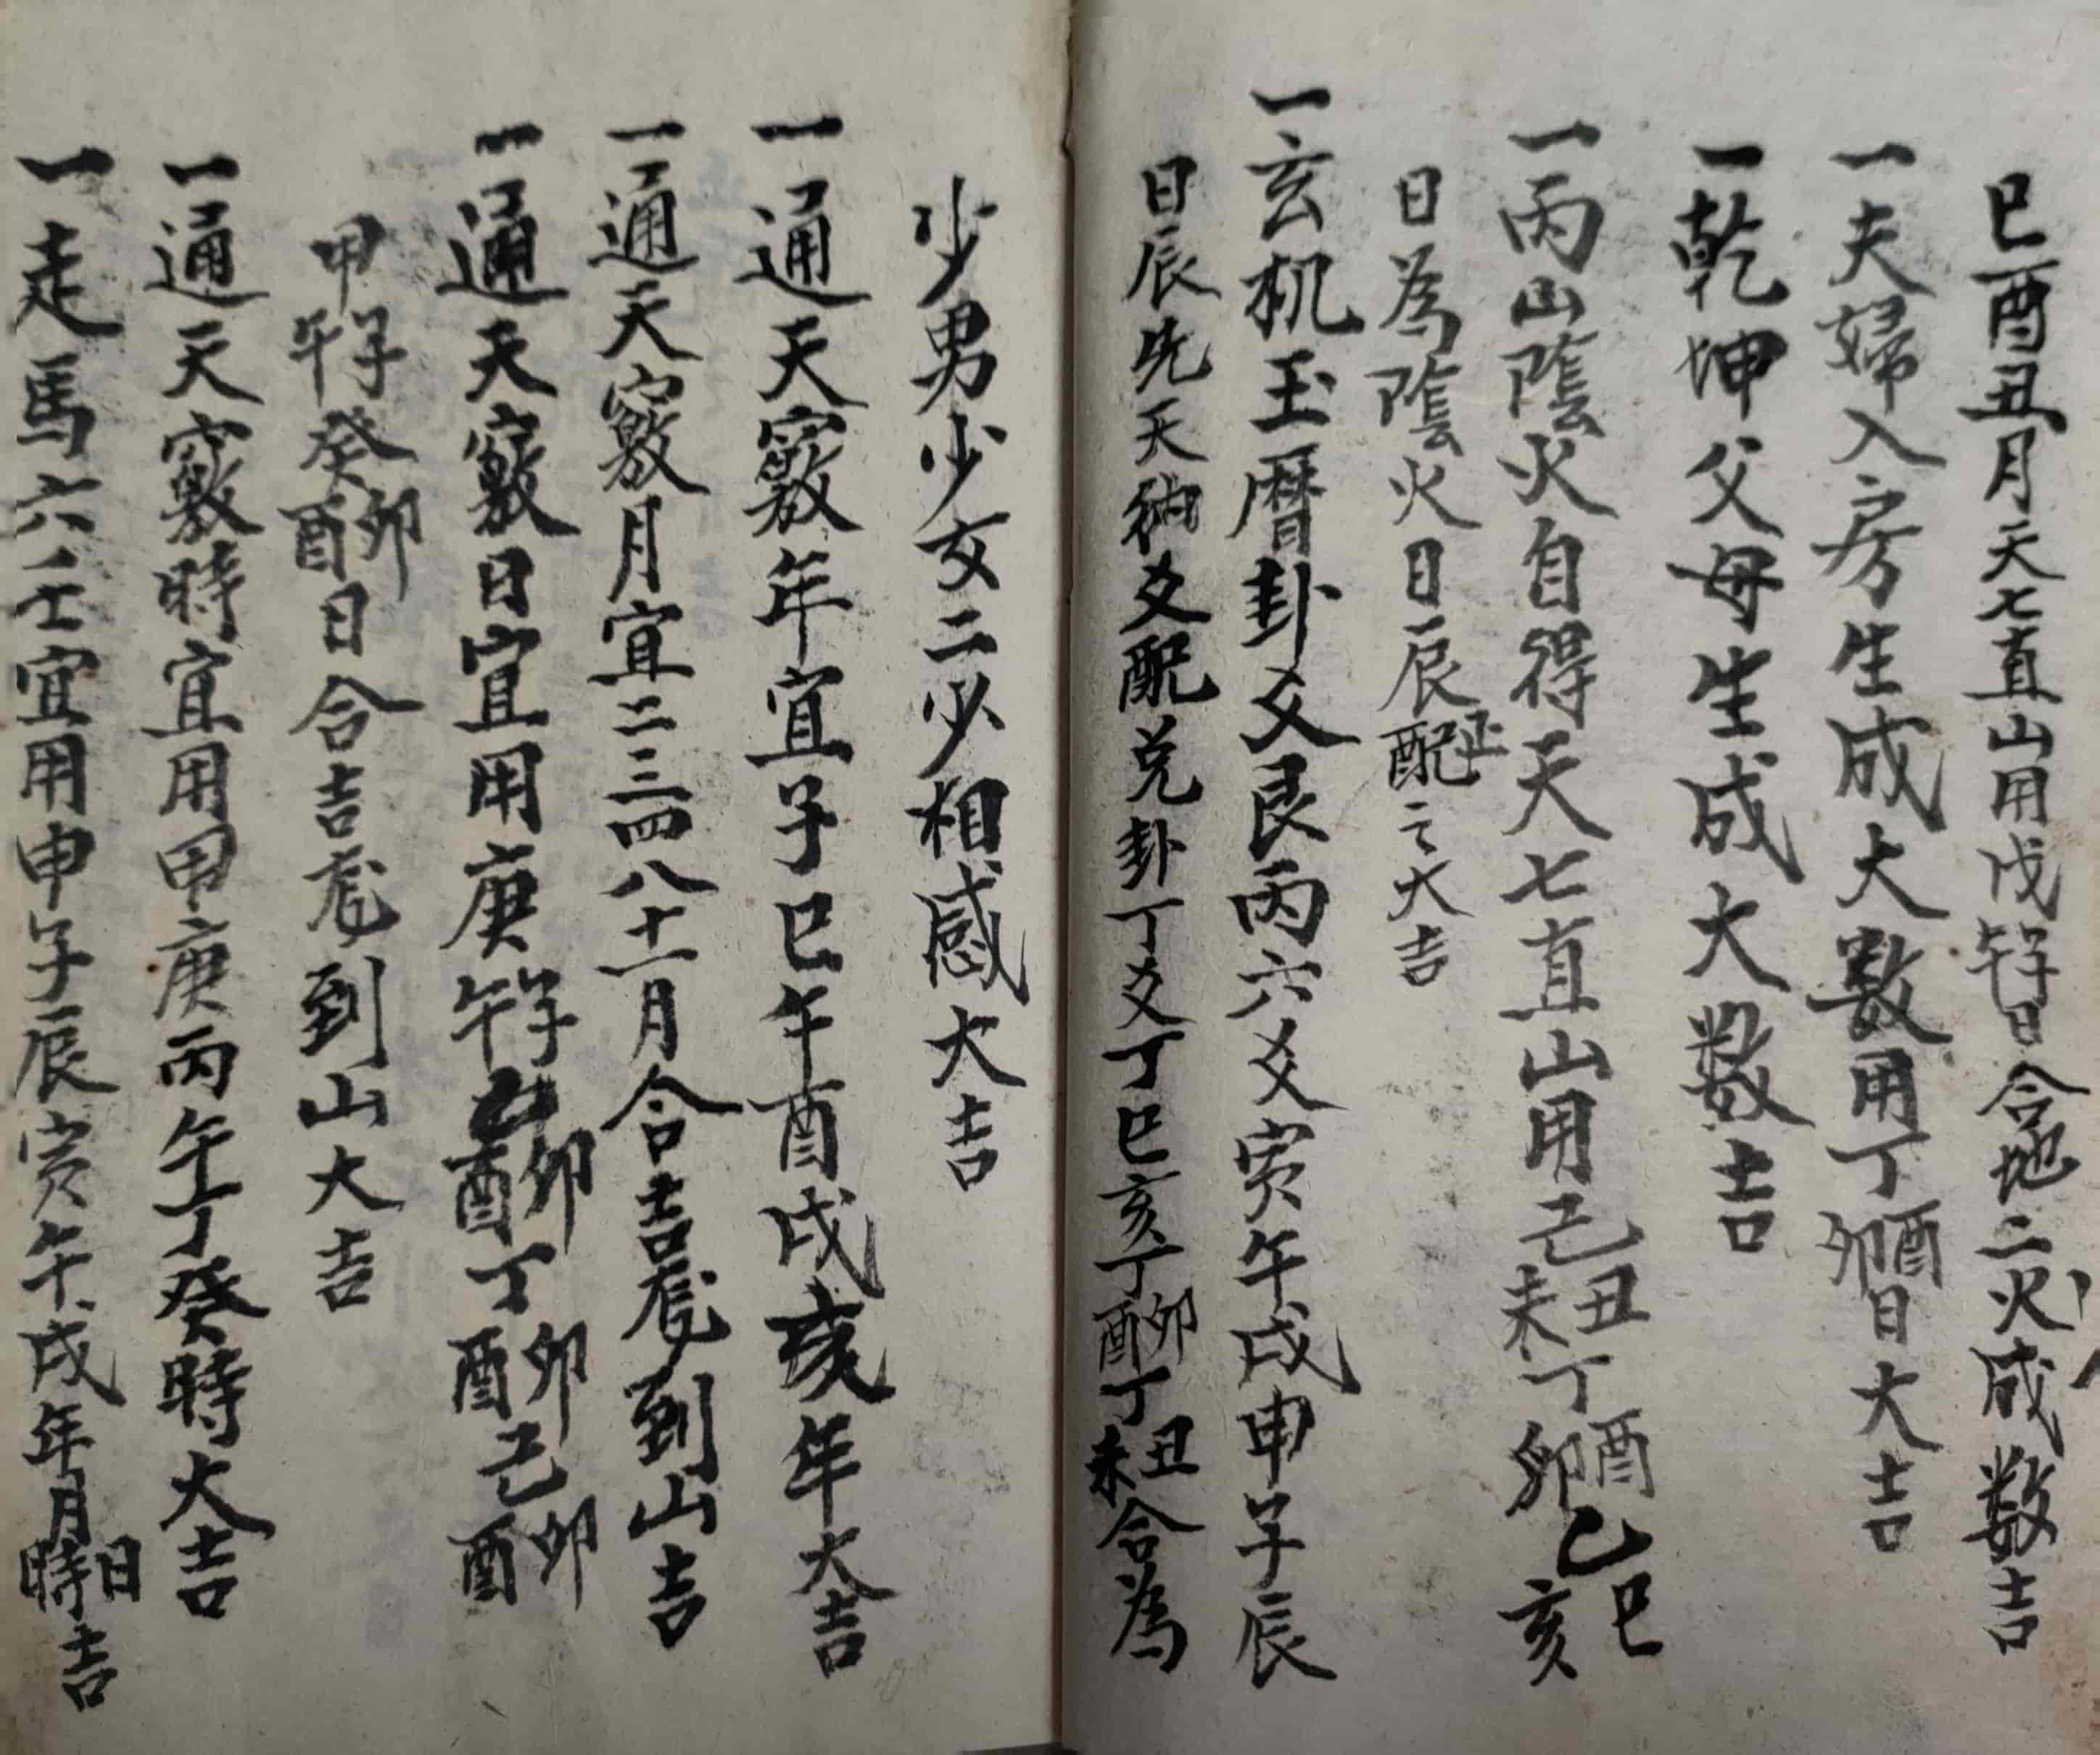 巳酉丑月天七直山用戊午子日合地二火成数吉
一夫婦入房生成大数用丁卯酉日大吉
一乾坤父母生成大数吉
一丙山隂火自得天七直山用己丑未丁酉卯乙巳亥
日為隂火日辰配正之大吉
一玄机玉暦卦爻艮丙六爻寅午戌申子辰
日辰先天納爻配兌卦丁爻丁巳亥丁卯酉丁丑未合為
少男少女二少相感大吉
一通天竅年宜子巳午酉戌亥年大吉
一通天竅月宜二三四八十一月合吉到山吉
一通天竅日宜用庚子午卯酉丁卯酉己卯酉
甲子午癸卯酉日合吉到山大吉
一通天竅時宜用甲庚丙午丁癸時大吉
一走馬六壬宜用申子辰寅午戌年月日時吉